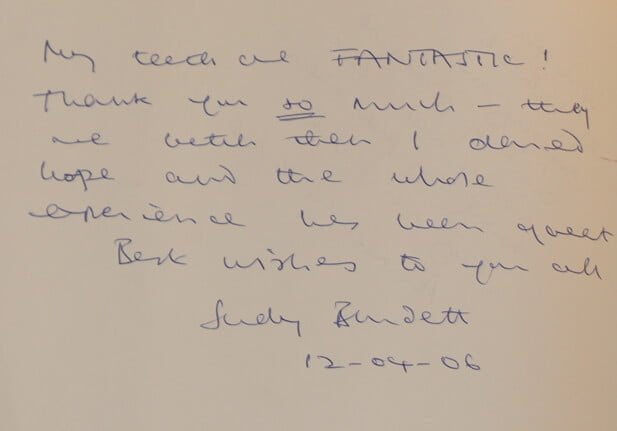 My teeth are FANTASTIC!
Thank you so much - they
are better than I dared
hope and the whole
experience has been great
Best wishes to you all
Judy Burdett
12-04-06